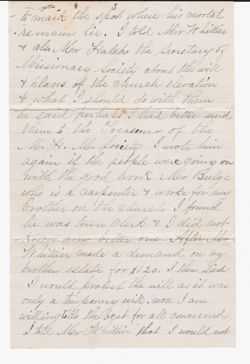 to mark the spot where his mortal
remains lie. I told Mr Whittier
& also Mr the Secretary of
Missionary Society about the will
& plans of the church
& what I should do with them
he said perhaps I had better send
them to the Treasurer of the
M. H. M. Society I wrote him
again if the people were going on
with the good work Mr
who is a carpenter & work for my
Brother on the church I found
he was town clerk & I did not
know any better one After Mr
Whittier made a demand on my
brothers estate for $120. I then said
I would protest the will as it was
only a temporary will. now I am
willing to do the best for all concerned
I told Mr Whittier that I would not